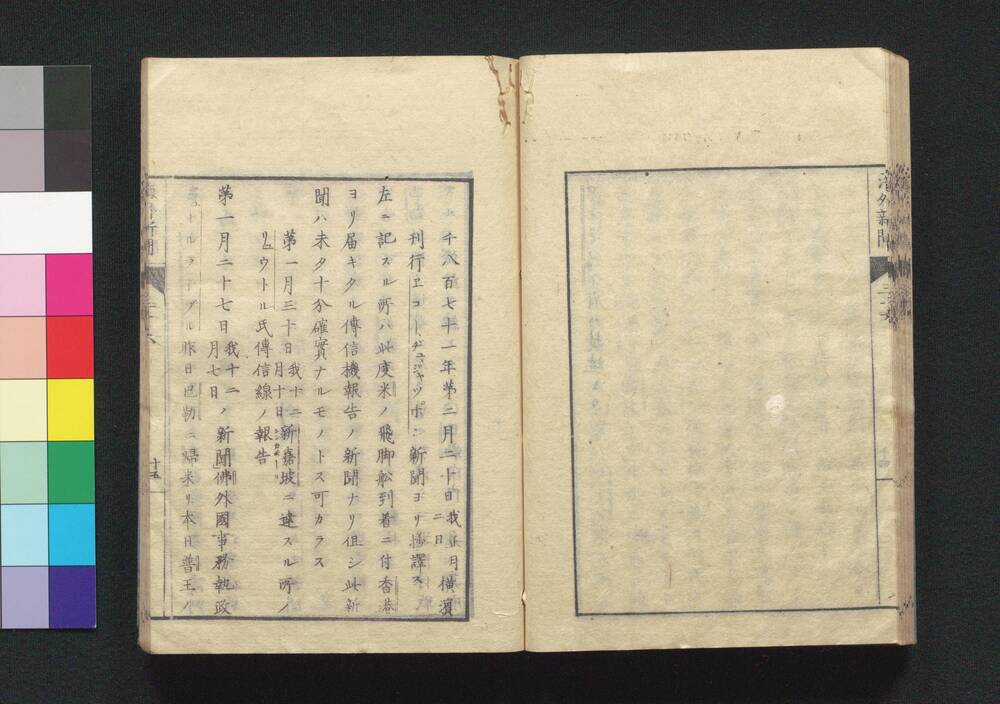 海外新聞
千八百七十一年第二月二十日我正月二日横濱
刊行ヱコトヂュジャッポン新聞ヨリ抄譯ス
左ニ記スル所ハ此度米ノ飛脚舩到着ニ付香港
ヨリ届キタル傳信機報告ノ新聞ナリ但シ此新
聞ハ未タ十分確實ナルモノトス可カラス
第一月三十日我十二月十日新嘉坡ニ達スル所ノ
リウトル氏傳信線ノ報告
第一月二十七日我十二月七日ノ新聞佛外國事務執政
昨日巴勒ニ歸来リ本日普王ノ
海外新聞
十五